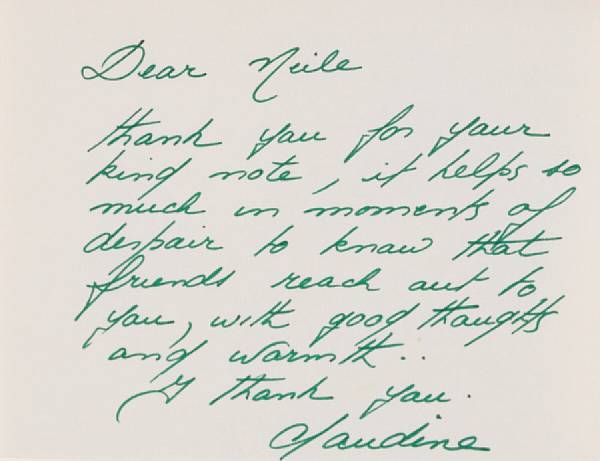 Dear Neile
thank you for your
kind note, it helps so
much in moments of
despair to know that
friends reach out to
you, with good thoughts
and warmth..
I thank you.
Claudine